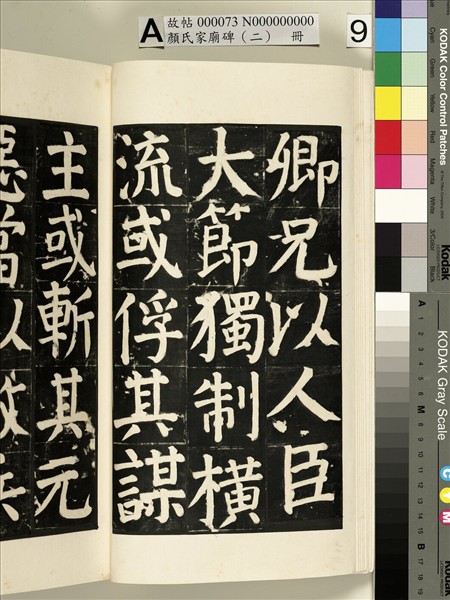 A
故帖 000073 N000000000
顏氏家廟碑（二） 冊
9
卿兄以人臣
大節獨制橫
流或俘其謀
主或斬其元
惡當以救兵
KODAK Color Control Patches
Cyan
Green
Yellow
Red
Magenta
White
3/Color
Black
Kodak
KODAK Gray Scale
A
1
2
3
4
5
6
M
8
9
10
11
12
13
14
15
B
17
18
19
C
Y
M
Kodak